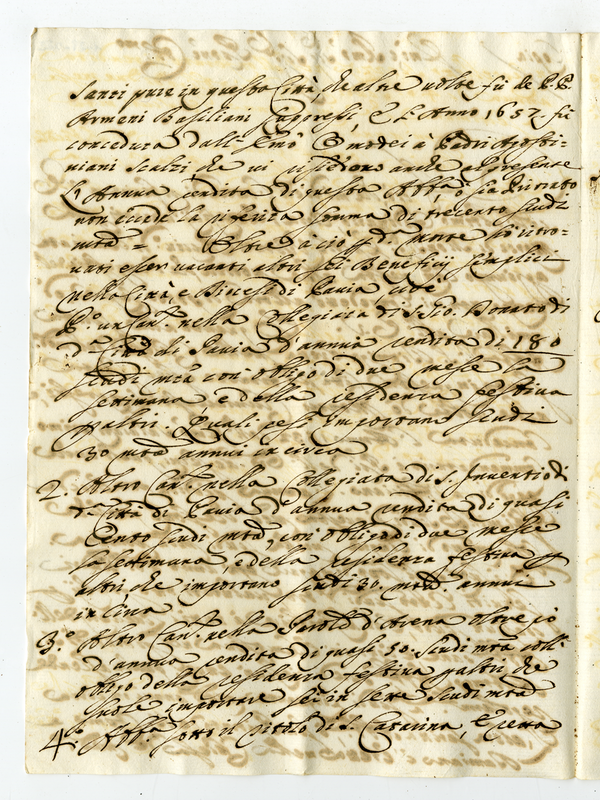 Santi pure in questa Città, che altre volte fù de P.P.
Armeni Basiliani Suppressi, e l'Anno 1657. fù
conceduta dall'Emo Omodei à Padri Agosti=
niani Scalzi che vi risiedono anche al presente
L'Annua rendita di questa Abb.a
non eccede la somma di trecento scudi
mta = Oltre à ciò p d.a morte si ritro=
vati esser vacanti altri sei Beneficij semplici
nella Città, e Diocesi di Pavia, cioè
P.o un Can.to nella Collegiata di S. Gio. Donato di
d.a Città di Pavia d'annua rendita di 180
scudi mta con obligo di due messe la
settimana e della residenza festiva
p altri. Quali pesi importano scudi
30 mta annui in circa
2. Altro Can.to nella Collegiata di S. Inventio di
d.a Città di Pavia d'annua rendita di quasi
Cento scudi mta, con obligo di due messe
la settimana, e della residenza festiva p
altri che importano scudi 30. mta annui
in circa
3.o Altro Can.to nella d'Arena Oltre pò
d'annua rendita di quasi 50. scudi mta coll'
obligo della residenza festiva p altri, che
suole importare sei in sette scudi mta
4.o Abb.a sotto il titolo di S. Catarina, e